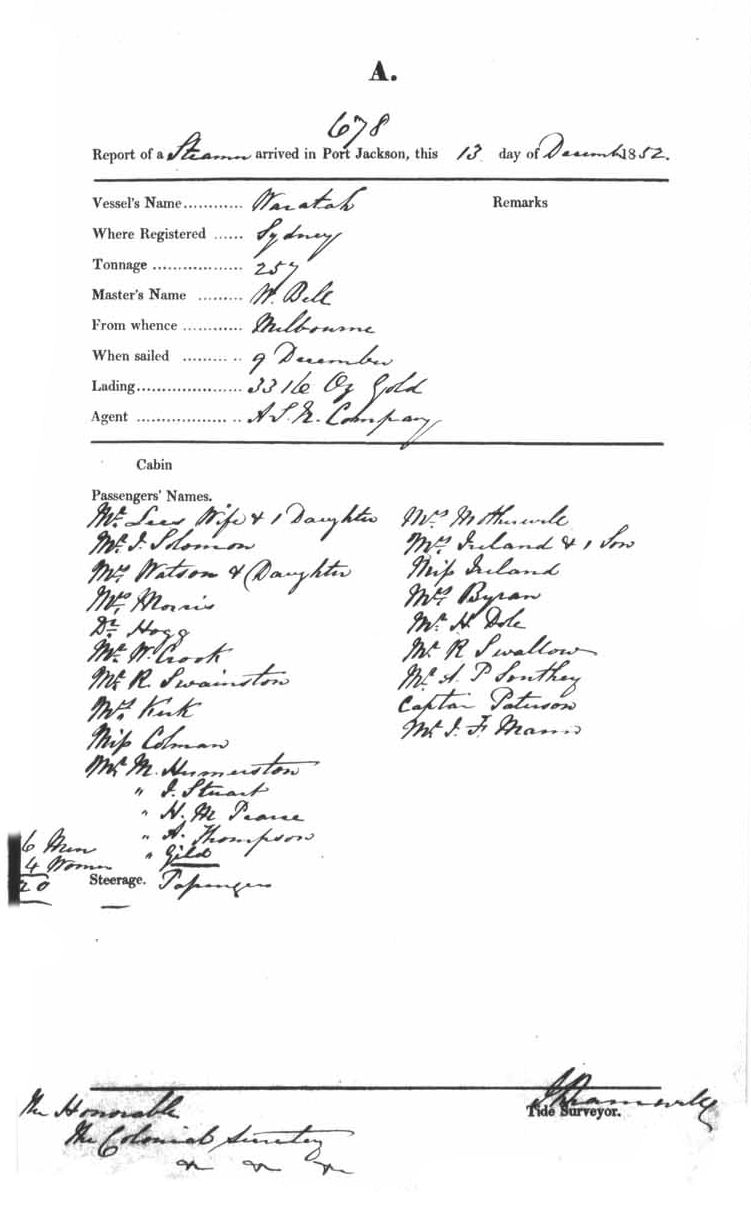 A.
678
Report of a Steamer arrived in Port Jackson, this 13 day of December 1852.
Vessel's Name............ Waratah
Remarks
Where Registered ...... Sydney
Tonnage .................. 257
Master's Name ......... W. Bell
From whence ............ Melbourne
When sailed ......... .. 9 December
Lading..................... 3316 Oz Gold
Agent ............... .. A S. N. Company
Cabin
Passengers' Names.
Mr. Lees Wife & 1 Daughter
Mr. I. Solomon
Mrs Watson & Daughter
Mrs, Morris
Dr. Hogg
Mr. W. Crook
Mr. R. Swainston
Mrs. Kirk
Miss Colman
Mr. M. Humerston
" J. Stuart
" H. M Pearse
" A. Thompson
"
Mrs Motherwell
Mrs. Ireland & 1 Son
Miss Ireland
Mrs. Byran
Mr. H. Dole
Mr. R Swallow
Mr. A. P Southey
Captain Paterson
Mr. J. F. Mann
6 Men
4 Women
20
Steerage. Passengers
The Honorable
The Colonial Secretary
Tide Surveyor.